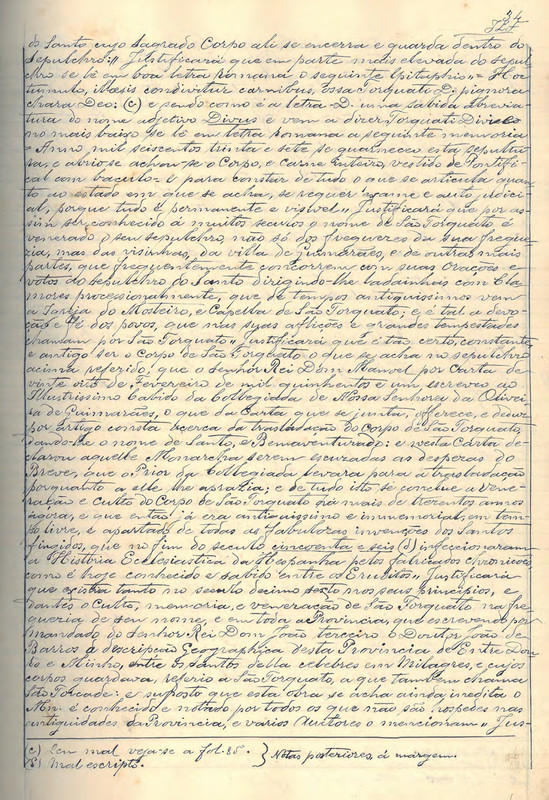 34
do Santo cujo Sagrado Corpo ali se encerra e guarda dentro do
Sepulchro:,, Justificará que em parte mais elevada do sepul-
chro se lê em boa letra Romana o seguinte Epitaphio,,= Hoc
tumulo, illæsis conditur carnibus, ossa Torquati D. pignora
chara Deo: (c) e sendo como é a letra = D. uma sabida abrevia-
tura do nome adjetivo Divus e vem a dizer Torquati Divi e lo-
no mais baixo se lê em letra Romana a seguinte memoria
= Anno mil seiscentos trinta e sete se guarneceu esta sepultu-
ra, e abrio-se achou-se o Corpo, e Carne Enteiro, vestido de Pontifi-
cal com baculo = E para constar de tudo o que se articula quan-
to ao estado em que se acha, se requer exame e auto judici-
al, porque tudo é permanente e visivel,, Justificará que por as-
sim ser conhecido á muitos seculos o nome de São Torquato, é
venerado o seu sepulchro, não só dos freguezes da sua fregue-
zia, mas das visinhas, da villa de Guimarães, e de outras mais
partes, que frequentemente concorrem com suas orações e
votos ao sepulchro do Santo dirigindo-lhe ladainhas com Cla-
mores processionalmente, que de tempos antiquissimos vem
a Igreja do Mosteiro, e Capella de São Torquato; e é tal a devo-
ção e fé dos povos, que nas suas aflicções e grandes tempestades
chamam por São Torquato,, Justificará que é tão certo, constante
e antigo ser o Corpo de São Torquato o que se acha no sepulchro
acima referido, que o Senhor Rei Dom Manoel por Carta de
vinte oito de Fevereiro de mil quinhentos e um escreveu ao
Illustrissimo Cabido da Collegiada de Nossa Senhora da Olivei-
ra de Guimarães, o que da Carta que se junta, offerece, e deduz
por artigo consta ácerca da trasladação do Corpo de São Torquato,
dando-lhe o nome de Santo, e Bemaventurado: e nesta Carta de-
clarou aquelle Monarcha serem escuzadas as despezas do
Breve, que o Prior da Collegiada levara para a trasladação
porquanto a elle lhe aprazia; e de tudo isto se conclue a vene-
ração e culto do Corpo de São Torquato ha mais de trezentos annos
agora, e que então já era antiquissimo e immemorial, em tem-
po livre, e apartado de todas as fabulozas invenções dos Santos
fingidos, que no fim do seculo cincoenta e seis (d) infeccionaram
a Historia Ecclesiastica da Hespanha pelos fabricados chronicões
como é hoje conhecido e sabido entre os Eruditos,, Justificará
que existia tanto no seculo decimo sexto nos seus principios, e
d'antes o Culto, memoria, e veneração de São Torquato na fre-
guezia de seu nome, e em toda a Provincia, que escrevendo por
mandado do Senhor Rei Dom João terceiro o Doutor João de
Barros a descripção Geographica desta Provincia de Entre Dou-
ro e Minho, entre os Santos della celebres em Milagres, e cujos
corpos guardava, referio a São Torquato, a que tambem chama
São Torcade: e supposto que esta obra se acha ainda inedita o
Abm é conhecido e nottado por todos os que não são hospedes nas
antiguidades da Provincia, e varios Auctores o mencionam,, Jus-
(c) Em mal veja-se a fol. 85.
(d) Mal escripto.
} Notas posteriores, á margem.